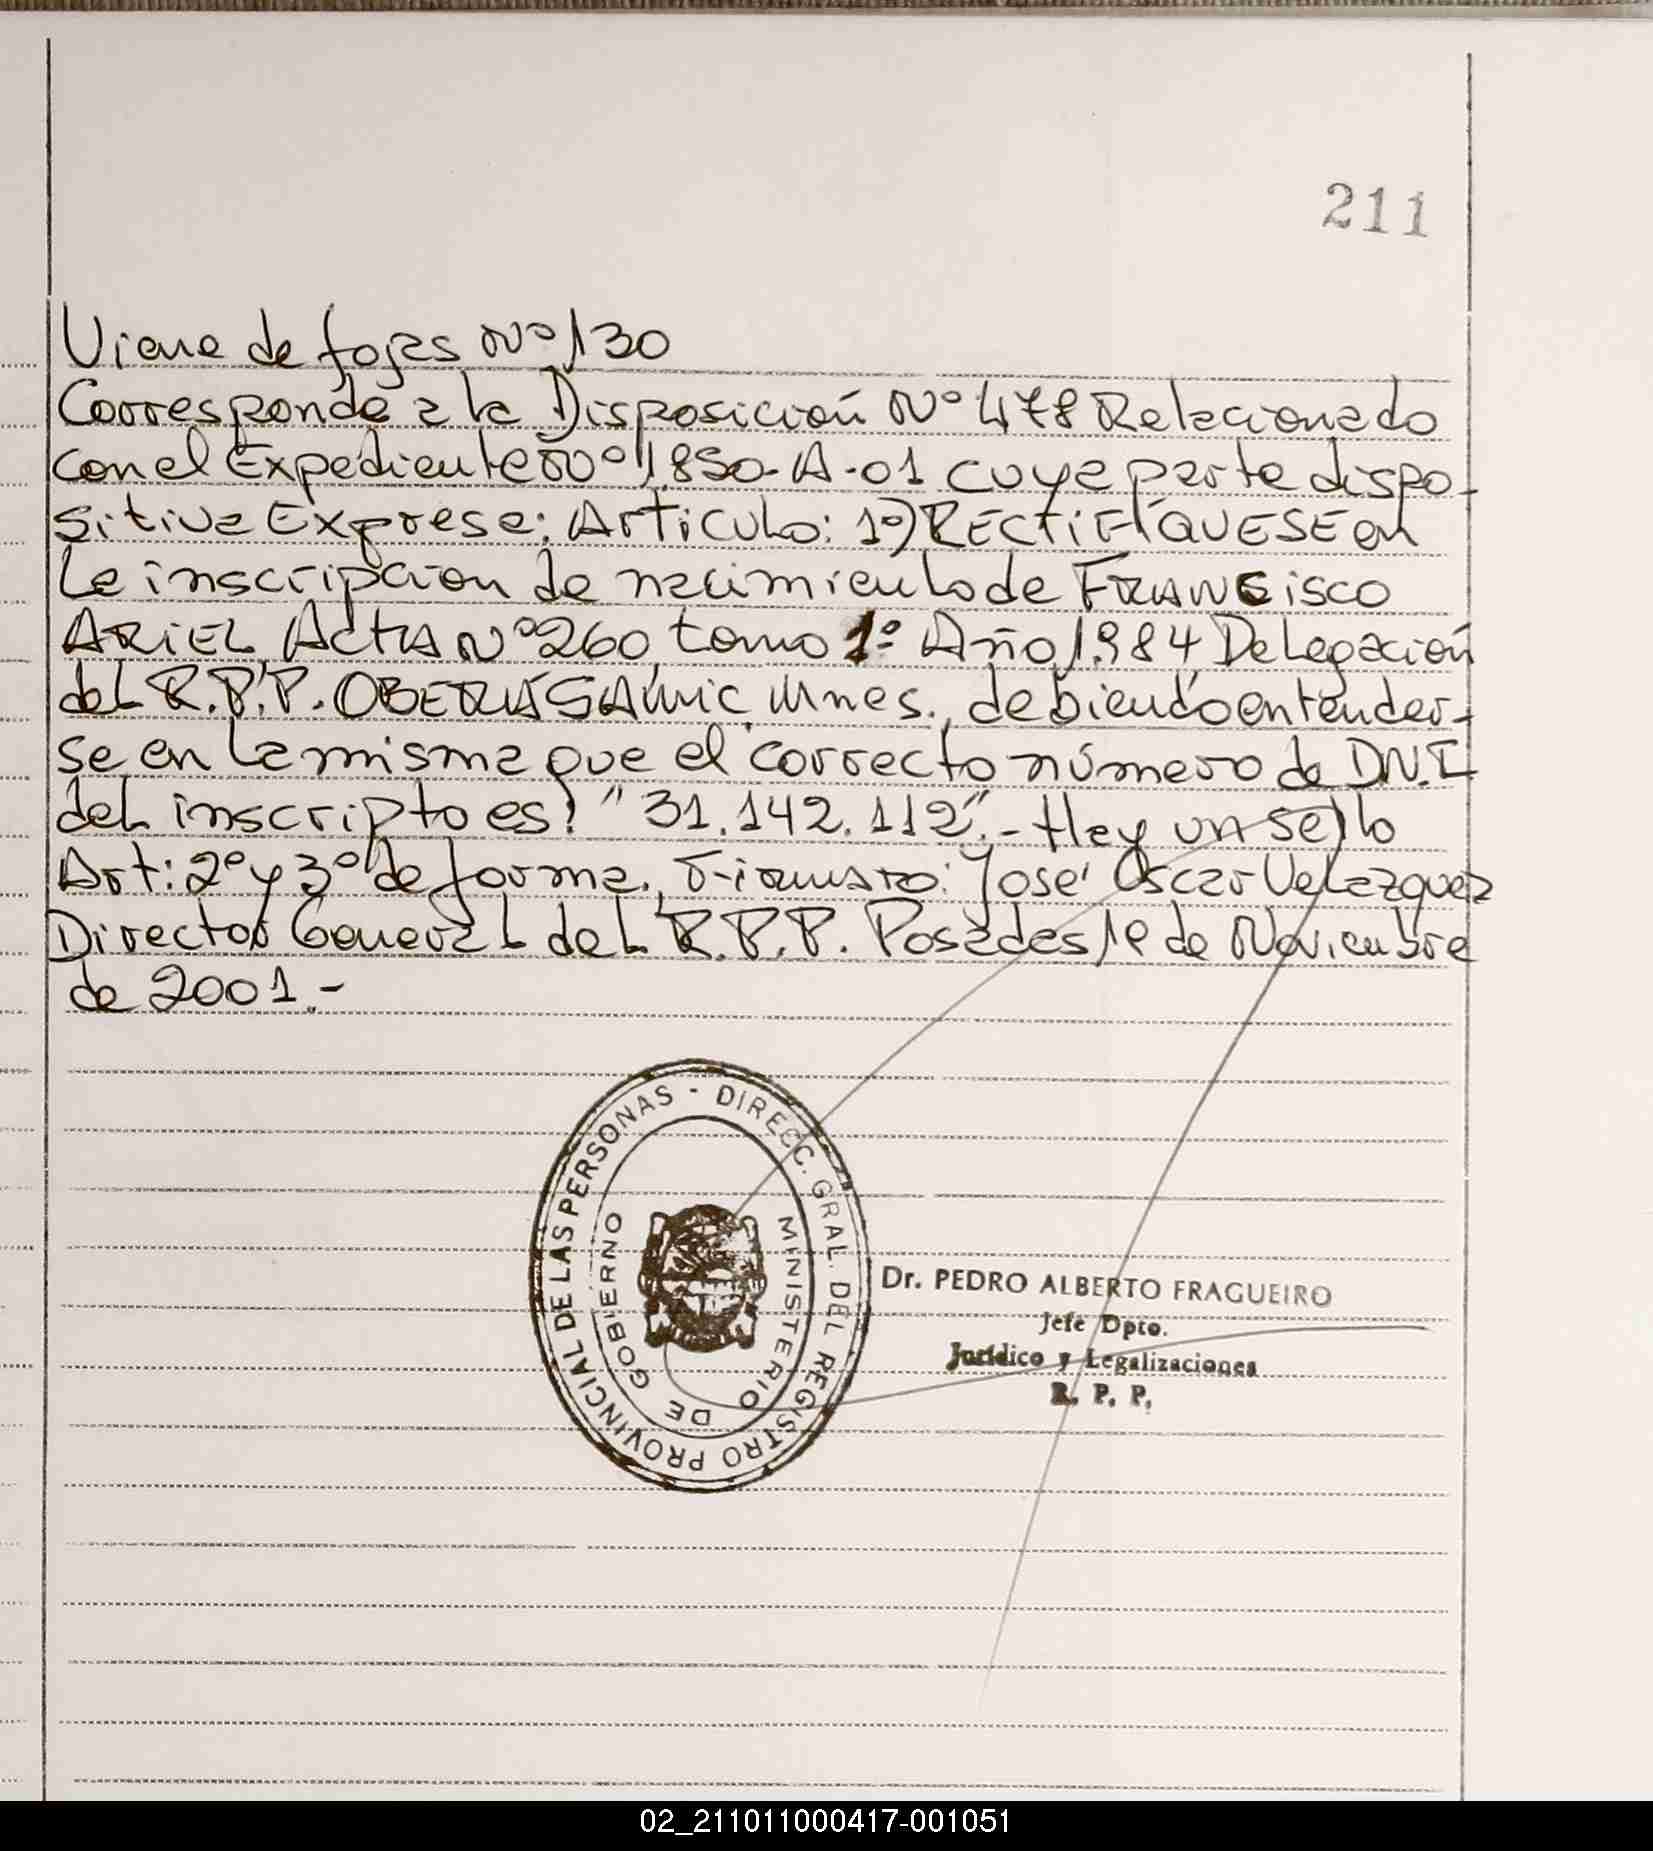 211
Viene de fojas Nº 130
Corresponde a la Disposición Nº 478 Relacionado
con el Expediente Nº 1.850-A-01 cuya parte dispo-
sitiva Expresa: Articulo: 1º) RECTIFÍQUESE en
la inscripcion de nacimiento de FRANCISCO
ARIEL Acta Nº 260, tomo 1º Año 1.984, Delegación
del R.P.P. OBERÁ
debiendo entender-
se en la misma que el correcto número de D.N.I
del inscripto es: "31.142.112".- Hay un sello
Art: 2º y 3º de forma. Firmado: José Oscar Velazquez
Director General del R.P.P. Posadas, 1º de Noviembre
de 2001.-
DIRECC. GRAL. DEL REGISTRO PROVINCIAL DE LAS PERSONAS -
MINISTERIO DE GOBIERNO
Dr. PEDRO ALBERTO FRAGUEIRO
Jefe Dpto.
Jurídico y Legalizaciones
R. P. P.
02_211011000417-001051